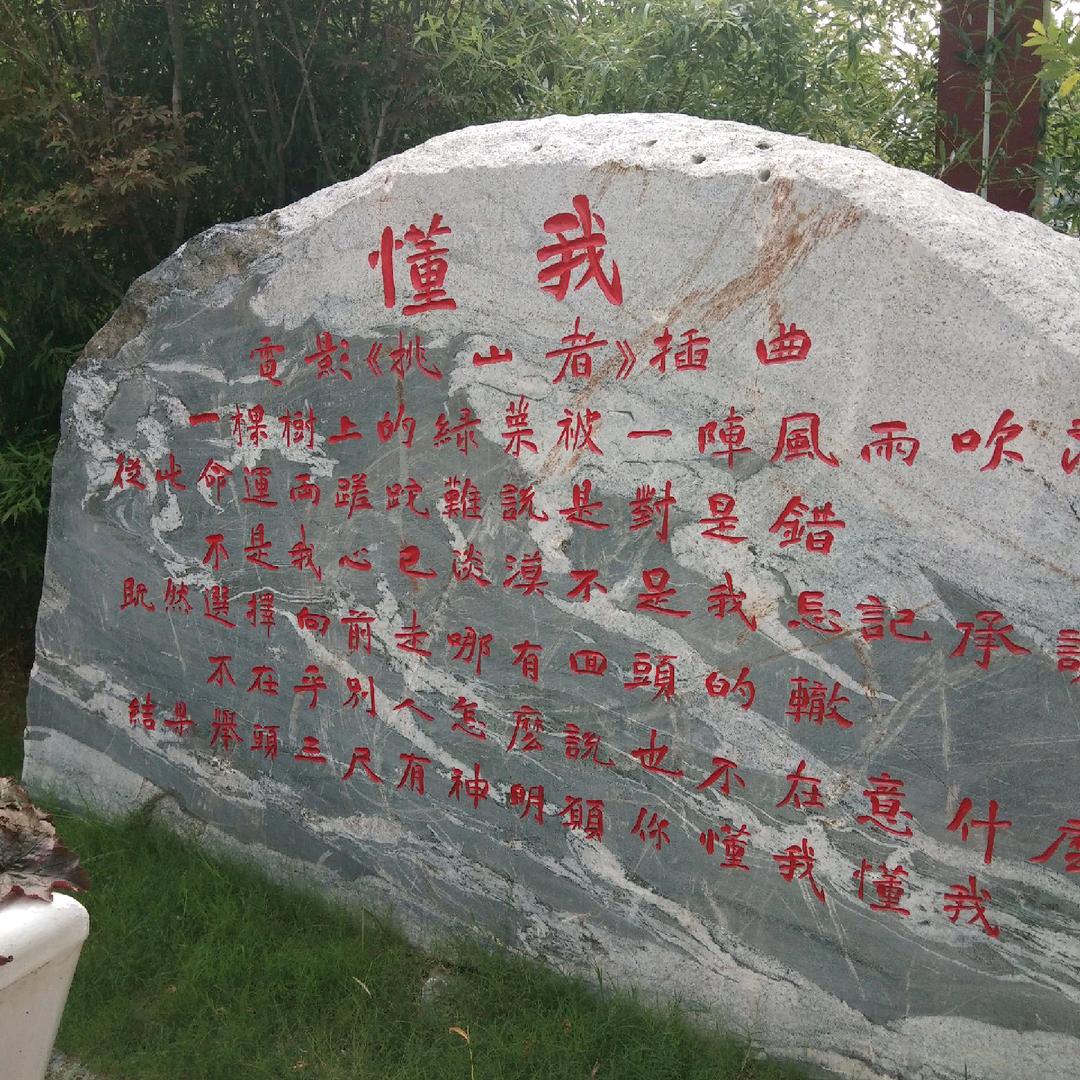 懂我
電影《挑山者》插曲
一棵樹上的緑葉被一陣風雨吹
從此命運兩蹉跎難説是對是錯
不是我心已淡漠不是我忘記承
既然選擇向前走哪有回頭的轍
不在乎別人怎麽説也不在意什麽
結果舉頭三尺有神明願你懂我懂我